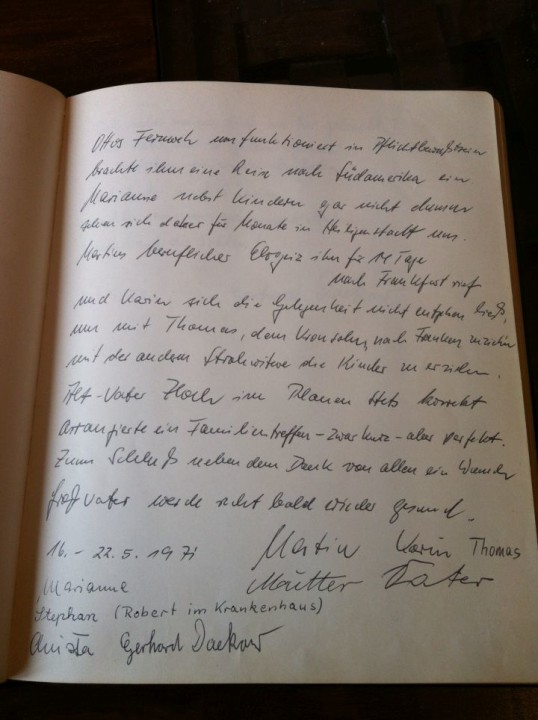 Ottos Fernweh umfunktioniert in Pflichtbewußtsein
brachte ihm eine Reise nach Südamerika ein
Marianne nebst Kindern gar nicht dumm
sehen sich daher für Monate in Heiligenstadt um.
Martins beruflicher ihn für 14 Tage
nach Frankfurt rief
und Karin sich die Gelegenheit nicht entgehen ließ,
um mit Thomas, dem nach Franken zu ziehn
mit der andern Strohwitwe die Kinder zu erziehn.
Alt-Vater im Planen stets korrekt
arrangierte ein Familientreffen - zwar kurz - aber perfekt.
Zum Schluß neben dem Dank von allen ein
Großvater werde recht bald wieder gesund.
16. - 22.5. 1971 Martin Karin Thomas
Marianne Mutter Vater
Stephan (Robert im Krankenhaus)
Gerhard